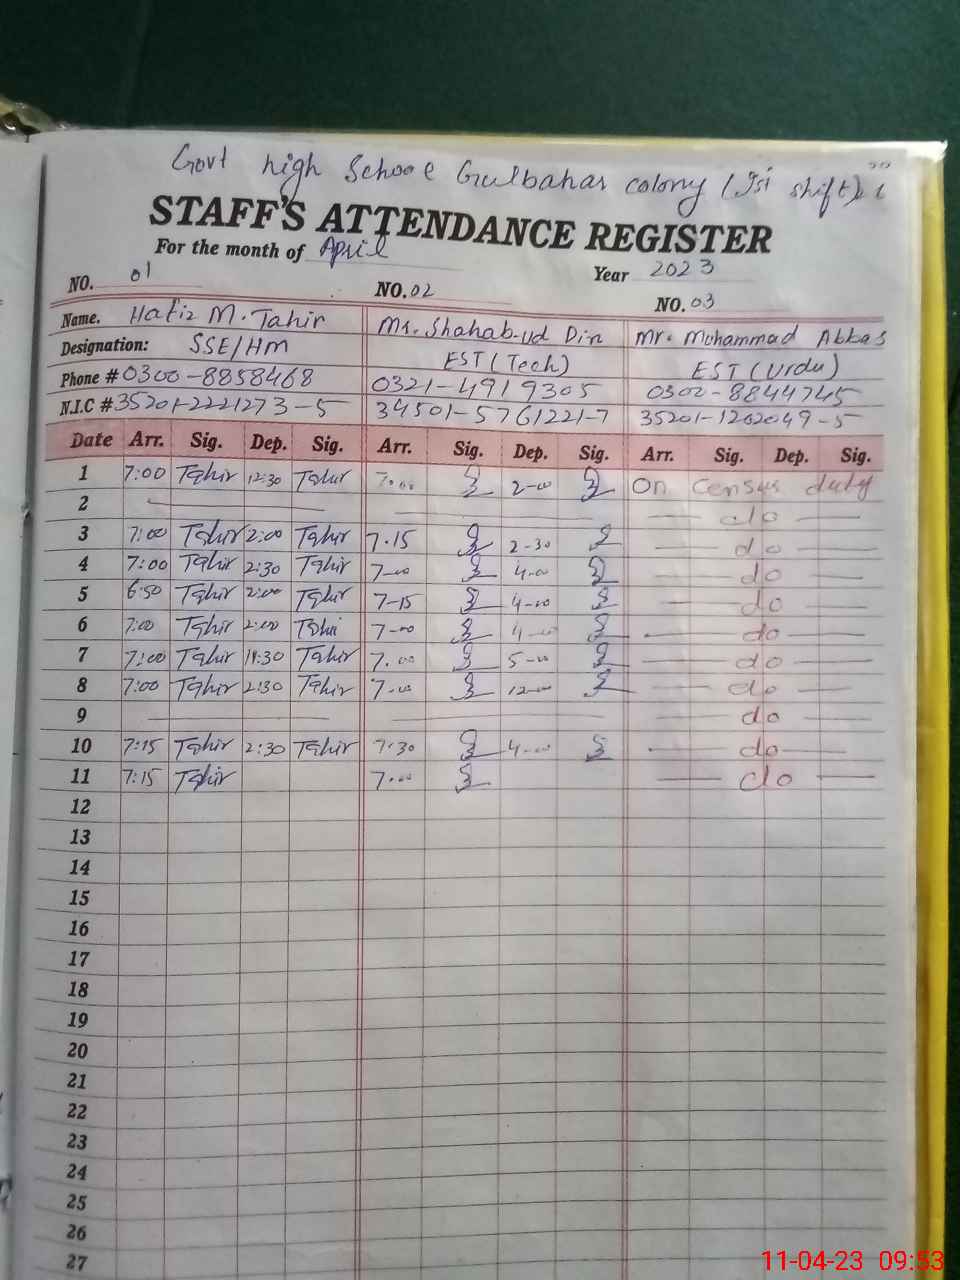 Govt high School Gulbahar colony (Ist shift)
STAFF'S ATTENDANCE REGISTER
For the month of April
Year 2023
NO. 01 NO. 02 NO. 03
Name. Hafiz M. Tahir Mr. Shahab-ud Din Mr. Muhammad Abbas
Designation: SSE/HM EST (Tech) EST (Urdu)
Phone # 0300-8858468 0321-4919305 0300-8844745
N.I.C # 35201-2221273-5 34501-5761221-7 35201-1202049-5
Date Arr. Sig. Dep. Sig. Arr. Sig. Dep. Sig. Arr. Sig. Dep. Sig.
1 7:00 Tahir 12:30 Tahir 7.00 2-00 On census duty
2 do
3 7:00 Tahir 2:00 Tahir 7.15 2-30 do
4 7:00 Tahir 2:30 Tahir 7-00 4-00 do
5 6:50 Tahir 2:00 Tahir 7-15 4-00 do
6 7:00 Tahir 2:00 Tahir 7-00 4-00 do
7 7:00 Tahir Tahir 7.00 5-00 do
8 7:00 Tahir 2:30 Tahir 7-00 12-00 do
9 do
10 7:15 Tahir 2:30 Tahir 7.30 4-00 do
11 7:15 Tahir 7.00 do
12
13
14
15
16
17
18
19
20
21
22
23
24
25
26
27
11-04-23 09:53